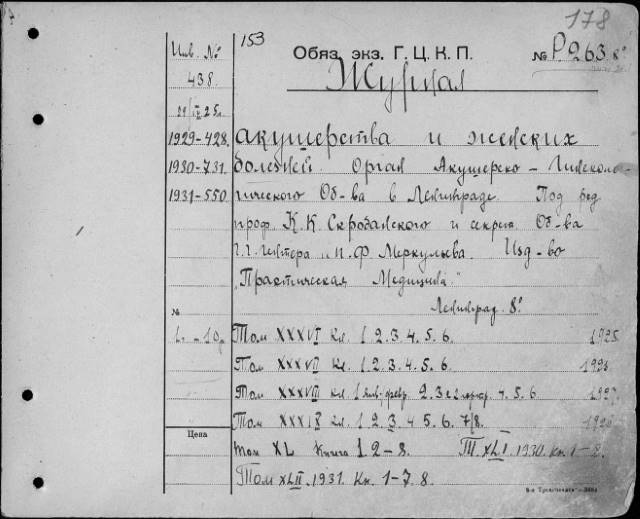 178
153
Обяз. экз. Г. Ц. К. П.
№ Р263 8°
Инв. №
438
Журнал
1929-428. акушерства и женских
1930-731. болезней. Орган Акушерско-Гинеколо-
1931-550. гического Об-ва в Ленинграде. Под ред
проф. К. К. Скробанского и секрет. Об-ва
Г. Г. Гентера и П. Ф. Меркульева. Изд-во
„Практическая Медицина"
Ленинград. 8°
№
Том XXXVI Кн. 1. 2. 3. 4. 5. 6. 1925.
Том XXXVII Кн. 1. 2. 3. 4. 5. 6. 1926
Том XXXVIII кн. 1 янв-февр. 2. 3 4. 5. 6 1927
Том XXXIX кн. 1. 2. 3. 4. 5. 6. 7/8.
Цена
Том XL Книга 1 2-8. Т. XLI. 1930. Кн. 1-2.
Том XLII. 1931. Кн. 1-7. 8.